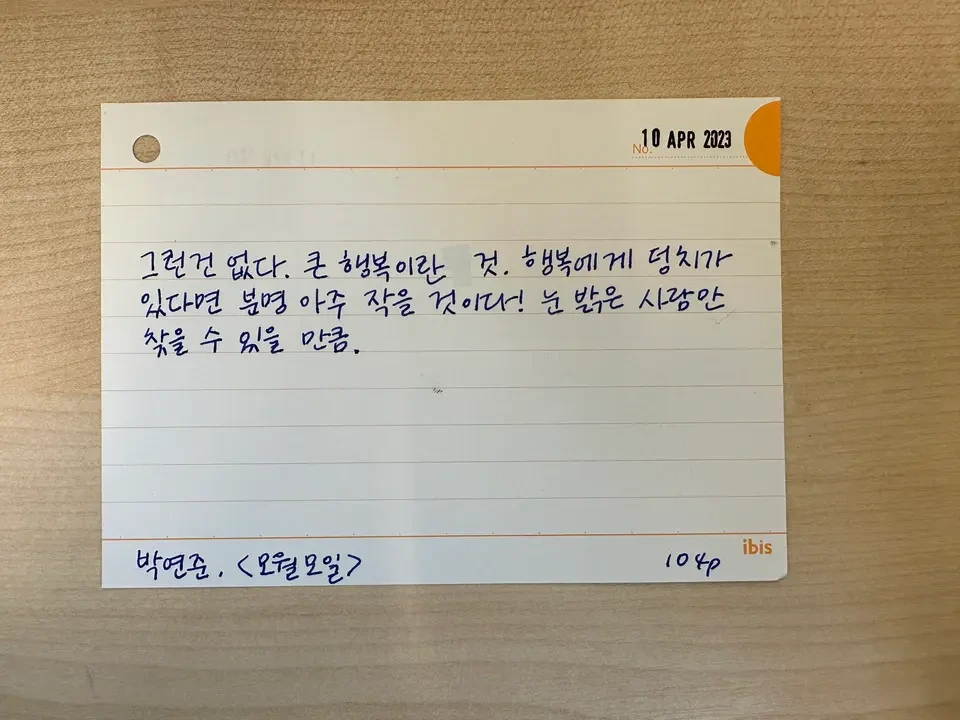 No. 10 APR 2023
그런건 없다. 큰 행복이란 것. 행복에게 덩치가
있다면 분명 아주 작을 것이다! 눈 밝은 사람만
찾을 수 있을 만큼.
박연준. <모월모일> 104p
ibis